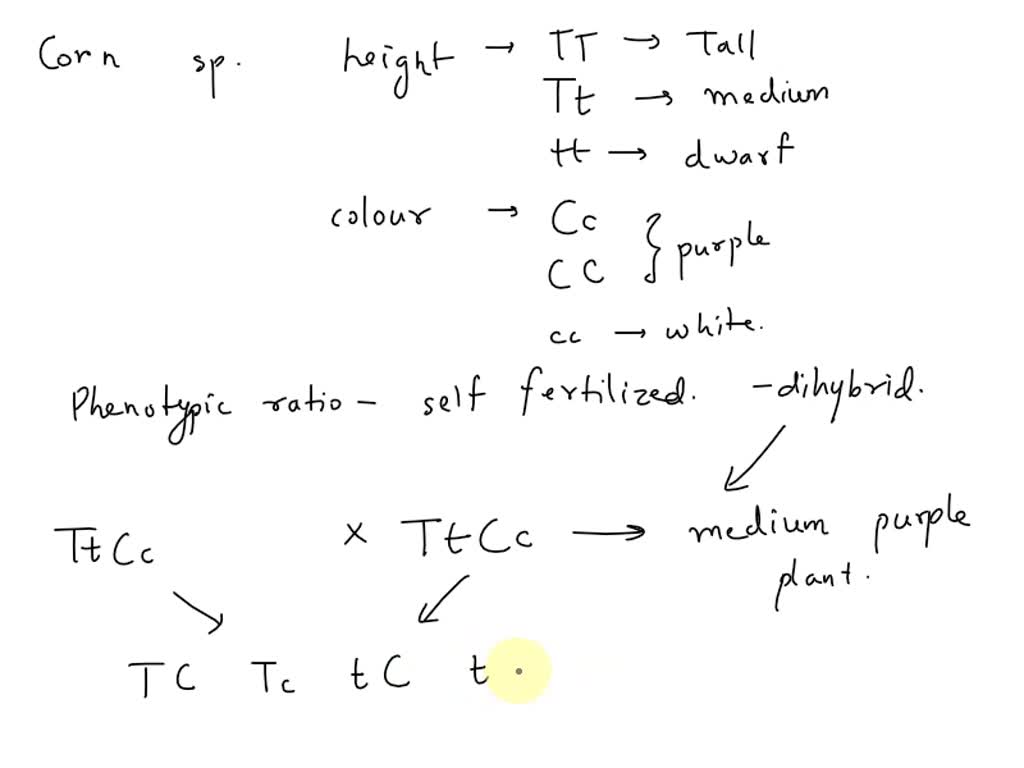 Corn sp. height → TT → Tall
Tt → medium
tt → dwarf
colour → Cc
CC } purple
cc → white.
Phenotypic ratio – self fertilized. – dihybrid.
TtCc × TtCc → medium purple
plant.
TC Tc tC t